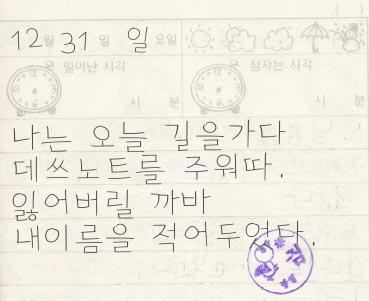 12월 31일 일요일
일어난 시각
잠자는 시각
시 분
시 분
나는 오늘 길을가다
데쓰노트를 주워따.
잃어버릴 까바
내이름을 적어두었다.